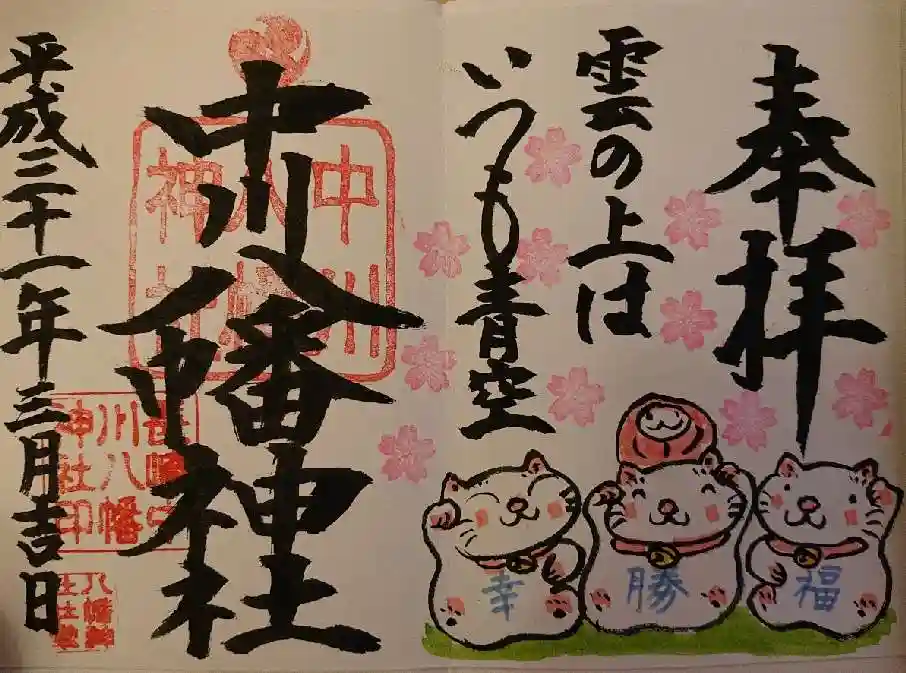 奉拝
雲の上は
いつも青空
中川八幡神社
平成三十一年三月吉日
福
勝
幸
中川八幡神社
長崎中川八幡神社印